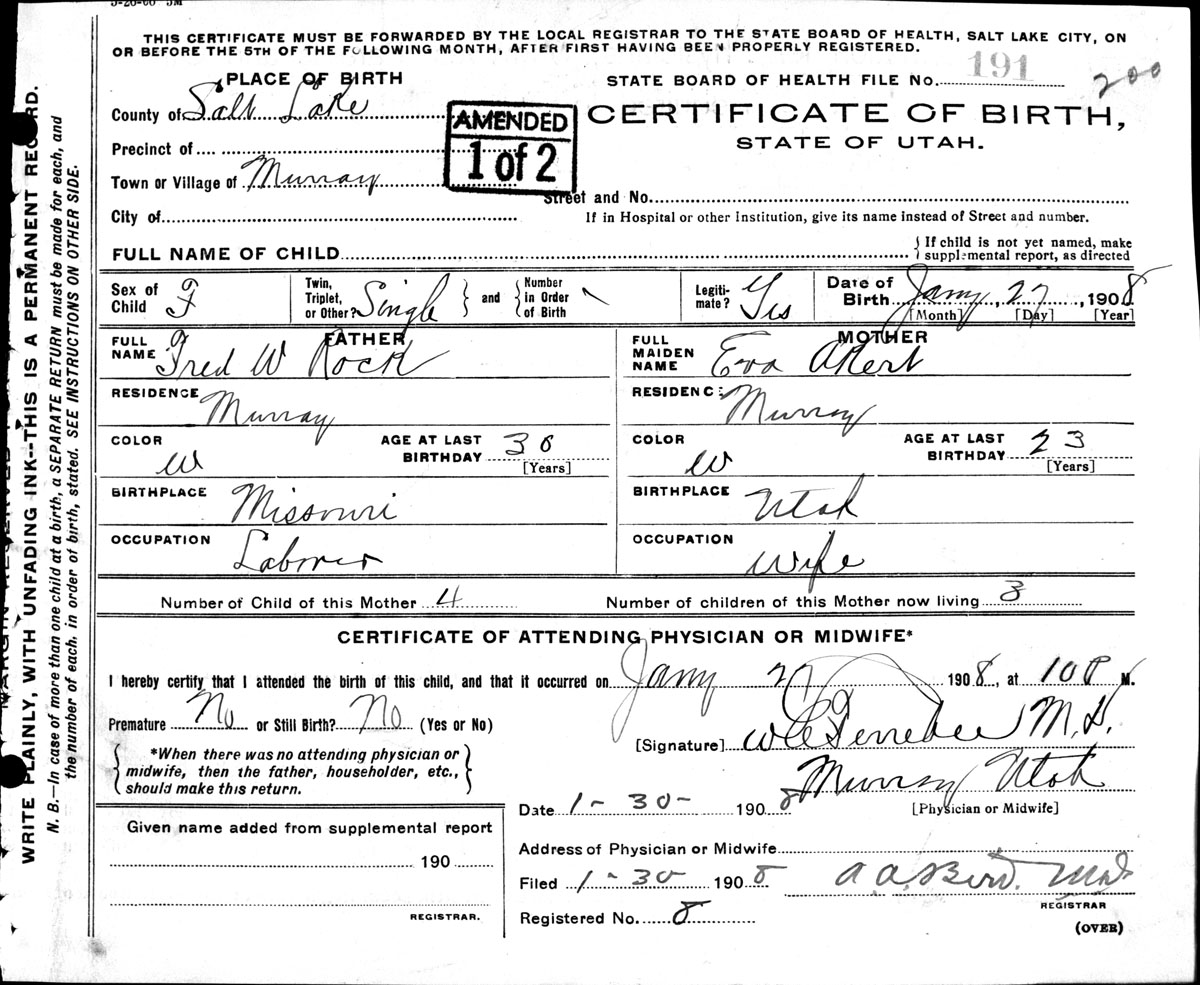 THIS CERTIFICATE MUST BE FORWARDED BY THE LOCAL REGISTRAR TO THE STATE BOARD OF HEALTH, SALT LAKE CITY, ON
OR BEFORE THE 5TH OF THE FOLLOWING MONTH, AFTER FIRST HAVING BEEN PROPERLY REGISTERED.
PLACE OF BIRTH
STATE BOARD OF HEALTH FILE No. 191
200
County of Salt Lake
AMENDED
1 of 2
CERTIFICATE OF BIRTH,
STATE OF UTAH.
Precinct of
Town or Village of Murray
Street and No.
City of
If in Hospital or other Institution, give its name instead of Street and number.
FULL NAME OF CHILD
{If child is not yet named, make
supplemental report, as directed
Sex of Child F
Twin, Triplet, or Other? Single } and { Number in Order of Birth
Legitimate? Yes
Date of Birth Jany, 27, 1908
[Month] [Day] [Year]
FATHER
FULL NAME Fred W Rock
RESIDENCE Murray
COLOR W
AGE AT LAST BIRTHDAY 36
[Years]
BIRTHPLACE Missouri
OCCUPATION Laborer
MOTHER
FULL MAIDEN NAME Eva Akert
RESIDENCE Murray
COLOR W
AGE AT LAST BIRTHDAY 23
[Years]
BIRTHPLACE Utah
OCCUPATION Wife
Number of Child of this Mother 4
Number of children of this Mother now living 3
CERTIFICATE OF ATTENDING PHYSICIAN OR MIDWIFE*
I hereby certify that I attended the birth of this child, and that it occurred on Jany 27 1908, at 10 P M.
Premature No or Still Birth? No (Yes or No)
[Signature] W C Ferrebee M.D.
{*When there was no attending physician or
midwife, then the father, householder, etc.,
should make this return.}
Murray Utah
[Physician or Midwife]
Date 1-30- 1908
Given name added from supplemental report
190
REGISTRAR.
Address of Physician or Midwife
Filed 1-30 1908 A. A. Bird. M.D.
REGISTRAR
Registered No. 8
(OVER)
WRITE PLAINLY, WITH UNFADING INK--THIS IS A PERMANENT RECORD.
N. B.—In case of more than one child at a birth, a SEPARATE RETURN must be made for each, and
the number of each, in order of birth, stated. SEE INSTRUCTIONS ON OTHER SIDE.